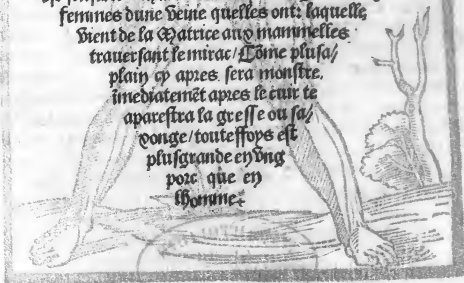 femmes dune veine quelles ont: laquelle
vient de la Matrice aux mammelles
trauersant le mirac/ Cõme plusa/
plain cy apres sera monstre.
imediatemẽt apres le cuir te
aparestra la gresse ou sa/
vonge/ touteffoys est
plusgrande en vng
porc que en
lhomme: